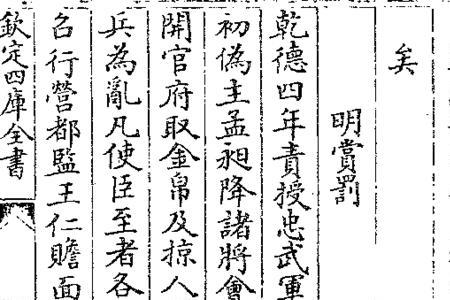 矣
明賞罰
乾德四年責授忠武軍
初偽主孟昶降諸將會
開官府取金帛及掠人
兵為亂凡使臣至者各
名行營都監王仁贍面
欽定四庫全書